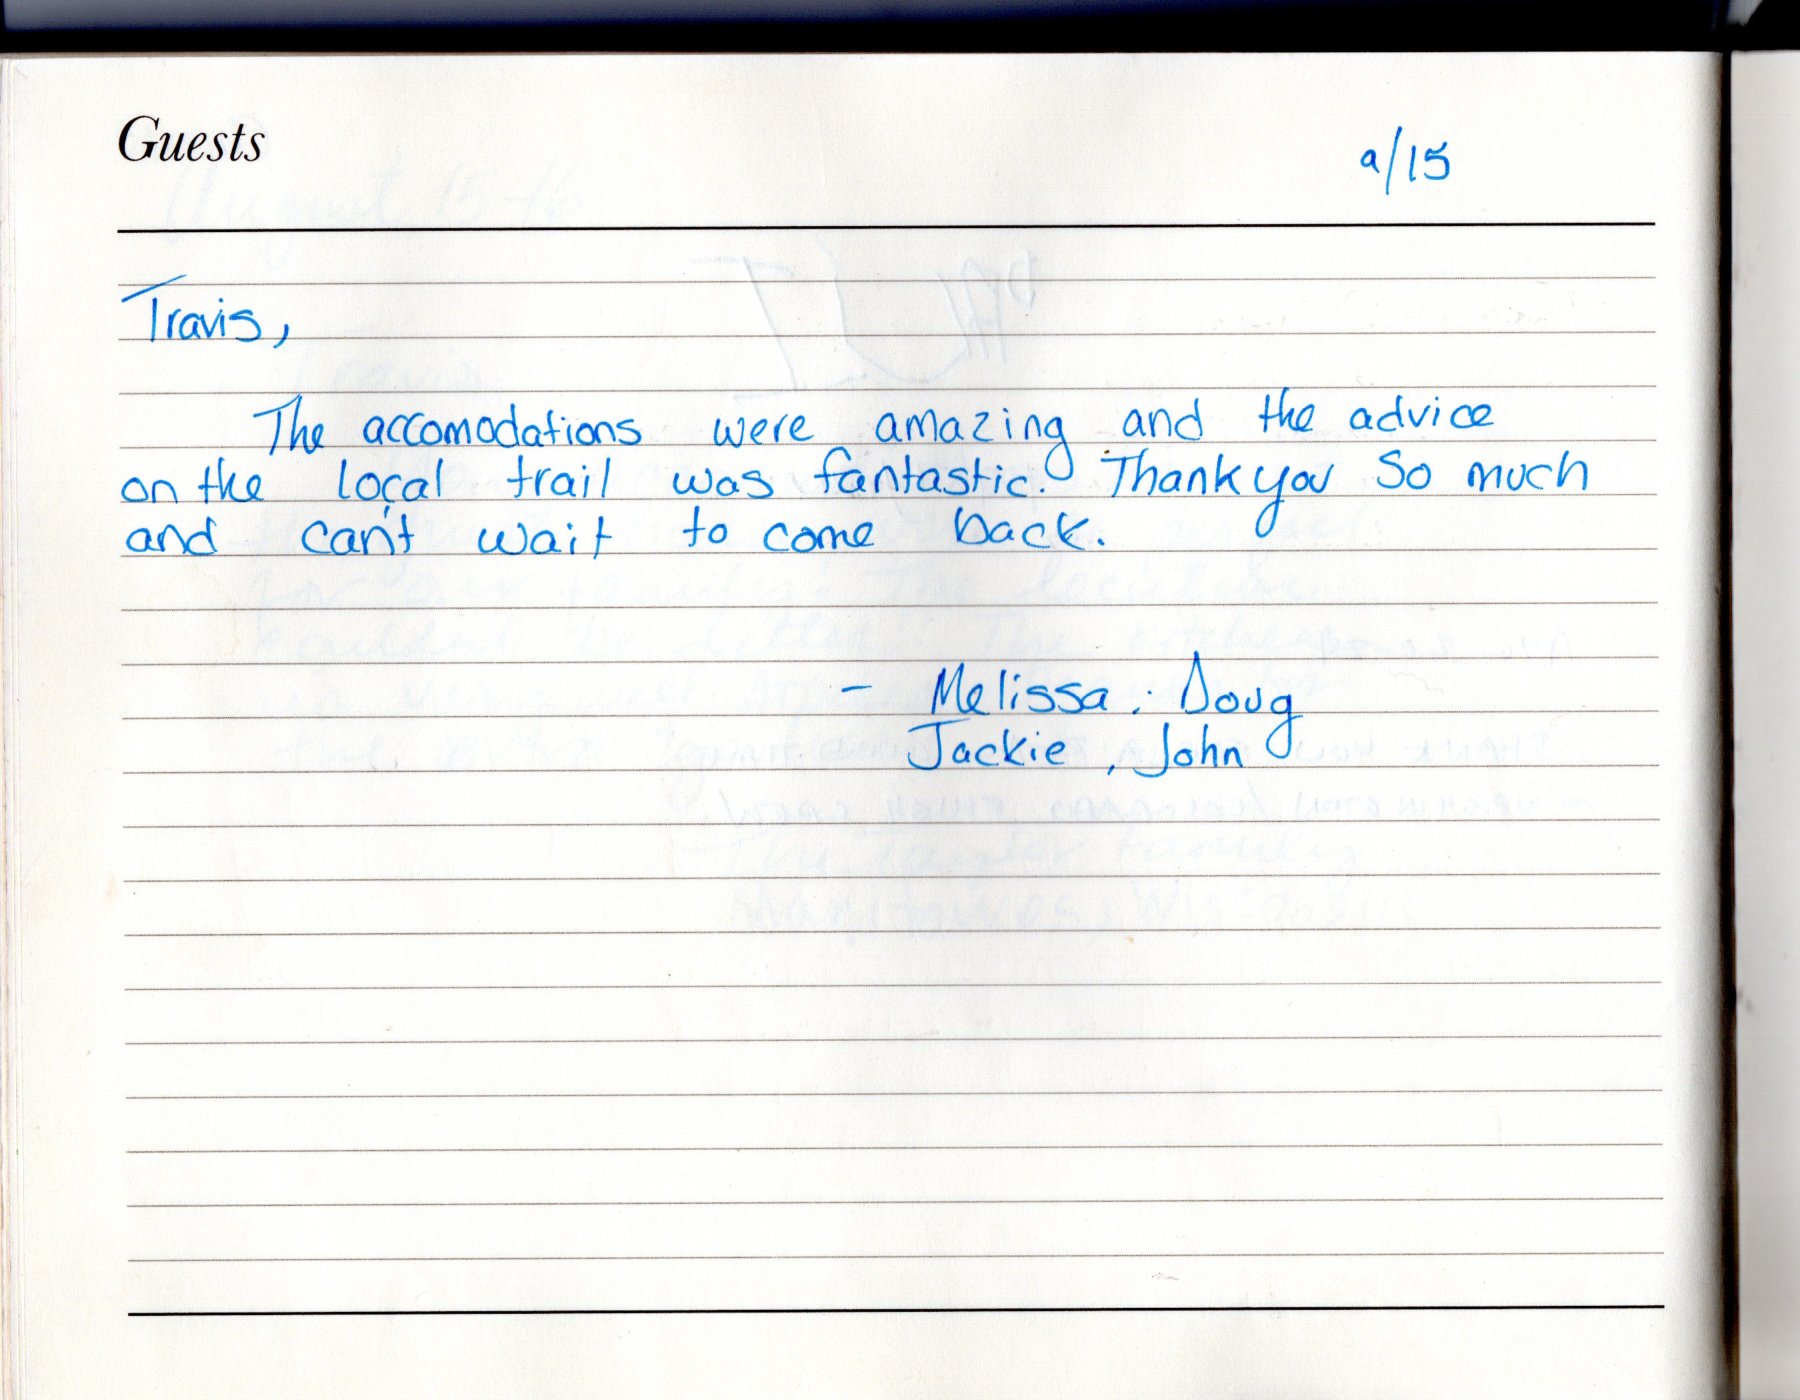 Guests
9/15
Travis,
The accomodations were amazing and the advice
on the local trail was fantastic. Thank you So much
and can't wait to come back.
- Melissa : Doug
Jackie , John